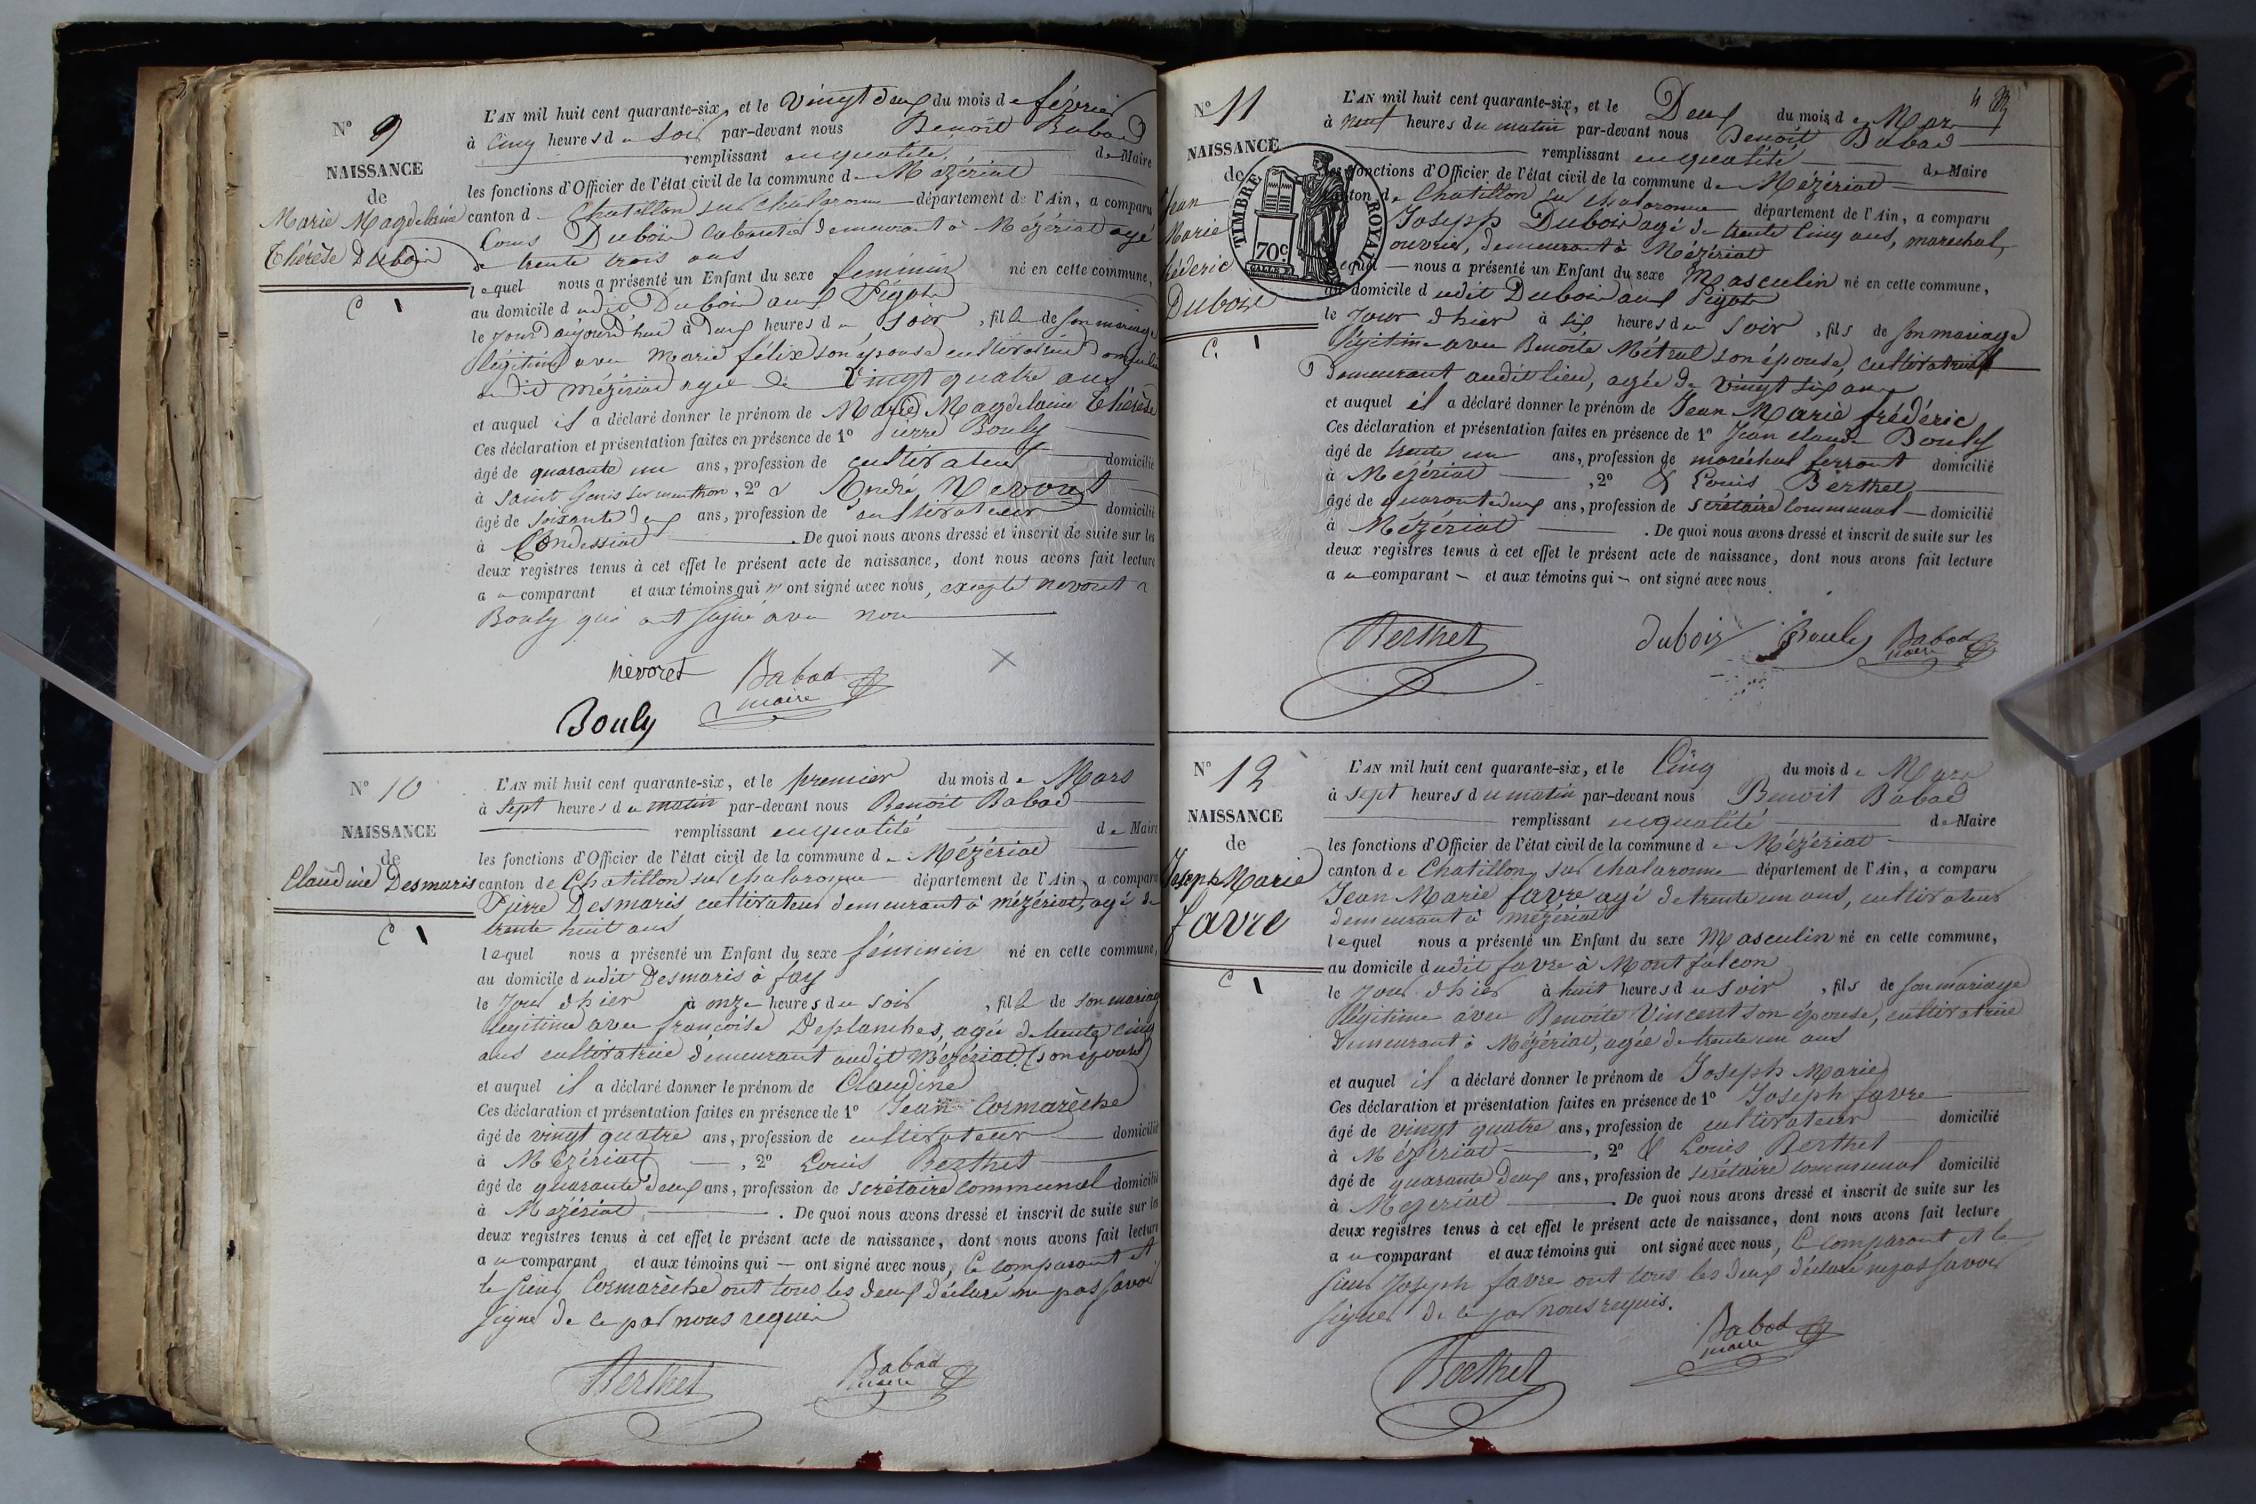 N° 9
NAISSANCE
de
Marie Magdelaine
Thérèse Dubois
C 1
L'AN mil huit cent quarante-six, et le vingt deux du mois de février
à cinq heures du soir par-devant nous Benoît Babad
remplissant en qualité de Maire
les fonctions d'Officier de l'état civil de la commune de Mézériat
canton de Chatillon sur chalaronne département de l'Ain, a comparu
Louis Dubois cabaretier demeurant à Mézériat agé
de trente trois ans
lequel nous a présenté un Enfant du sexe feminin né en cette commune,
au domicile dudit Dubois aux Pigots
le jour d'aujourd'hui à deux heures du soir, fille de son mariage
légitime avec Marie félix son épouse cultivatrice
audit mézériat agée de vingt quatre ans
et auquel il a déclaré donner le prénom de Marie Magdelaine Thérèse
Ces déclaration et présentation faites en présence de 1° Pierre Bouly
âgé de quarante un ans, profession de cultivateur domicilié
à saint Genis sur menthon, 2° & André Nevoret
âgé de soixante deux ans, profession de cultivateur domicilié
à Condessiat. De quoi nous avons dressé et inscrit de suite sur les
deux registres tenus à cet effet le présent acte de naissance, dont nous avons fait lecture
au comparant et aux témoins qui n'ont signé avec nous, excepté nevoret &
Bouly qui ont signé avec nous
nevoret Babad
maire
Bouly
N° 10
NAISSANCE
de
Claudine Desmaris
C 1
L'AN mil huit cent quarante-six, et le premier du mois de Mars
à sept heures du matin par-devant nous Benoît Babad
remplissant en qualité de Maire
les fonctions d'Officier de l'état civil de la commune de Mézériat
canton de Chatillon sur chalaronne département de l'Ain, a comparu
Pierre Desmaris cultivateur demeurant à mézériat, agé de
trente huit ans
lequel nous a présenté un Enfant du sexe féminin né en cette commune,
au domicile dudit Desmaris à fay
le jour d'hier à onze heures du soir, fille de son mariage
légitime avec françoise Deplanches, agée de trente cinq
ans cultivatrice demeurant audit Mézériat (son épouse)
et auquel il a déclaré donner le prénom de Claudine
Ces déclaration et présentation faites en présence de 1° Jean Cormarèche
âgé de vingt quatre ans, profession de cultivateur domicilié
à Mézériat, 2° Louis Berthet
âgé de quarante deux ans, profession de secrétaire communal domicilié
à Mézériat. De quoi nous avons dressé et inscrit de suite sur les
deux registres tenus à cet effet le présent acte de naissance, dont nous avons fait lecture
au comparant et aux témoins qui ont signé avec nous, le comparant et
le sieur Cormarèche ont tous les deux déclaré ne pas savoir
signer de ce par nous requis
Berthet Babad
maire
N° 11
NAISSANCE
de
Jean
Marie
fréderic
Dubois
C. 1
TIMBRE ROYAL
70c
L'AN mil huit cent quarante-six, et le Deux du mois de Mars
à neuf heures du matin par-devant nous Benoît Babad
remplissant en qualité de Maire
les fonctions d'Officier de l'état civil de la commune de Mézériat
canton de Chatillon sur chalaronne département de l'Ain, a comparu
Joseph Dubois agé de trente cinq ans, marechal,
ouvrier, demeurant à Mézériat
lequel nous a présenté un Enfant du sexe Masculin né en cette commune,
au domicile dudit Dubois aux Pigots
le jour d'hier à six heures du soir, fils de son mariage
légitime avec Benoite Métral son épouse, cultivatrice
Demeurant audit lieu, agée de vingt six ans
et auquel il a déclaré donner le prénom de Jean Marie frédéric
Ces déclaration et présentation faites en présence de 1° Jean claude Bouly
âgé de trente un ans, profession de maréchal ferrant domicilié
à Mézériat, 2° & Louis Berthet
âgé de quarante deux ans, profession de secrétaire communal domicilié
à Mézériat. De quoi nous avons dressé et inscrit de suite sur les
deux registres tenus à cet effet le présent acte de naissance, dont nous avons fait lecture
au comparant et aux témoins qui ont signé avec nous
Berthet dubois Bouly Babad
maire
N° 12
NAISSANCE
de
Joseph Marie
favre
C 1
L'AN mil huit cent quarante-six, et le Cinq du mois de Mars
à sept heures du matin par-devant nous Benoit Babad
remplissant en qualité de Maire
les fonctions d'Officier de l'état civil de la commune de Mézériat
canton de Chatillon sur chalaronne département de l'Ain, a comparu
Jean Marie favre agé de trente un ans, cultivateur
demeurant à mézériat
lequel nous a présenté un Enfant du sexe Masculin né en cette commune,
au domicile dudit favre à Mont falcon
le jour d'hier à huit heures du soir, fils de son mariage
légitime avec Benoite Vincent son épouse, cultivatrice
Demeurant à Mézériat, agée de trente un ans
et auquel il a déclaré donner le prénom de Joseph Marie
Ces déclaration et présentation faites en présence de 1° Joseph favre
âgé de vingt quatre ans, profession de cultivateur domicilié
à Mézériat, 2° & Louis Berthet
âgé de quarante deux ans, profession de secrétaire communal domicilié
à Mezériat. De quoi nous avons dressé et inscrit de suite sur les
deux registres tenus à cet effet le présent acte de naissance, dont nous avons fait lecture
au comparant et aux témoins qui ont signé avec nous, le comparant et le
sieur Joseph favre ont tous les deux déclaré ne pas savoir
signer de ce par nous requis.
Berthet Babad
maire